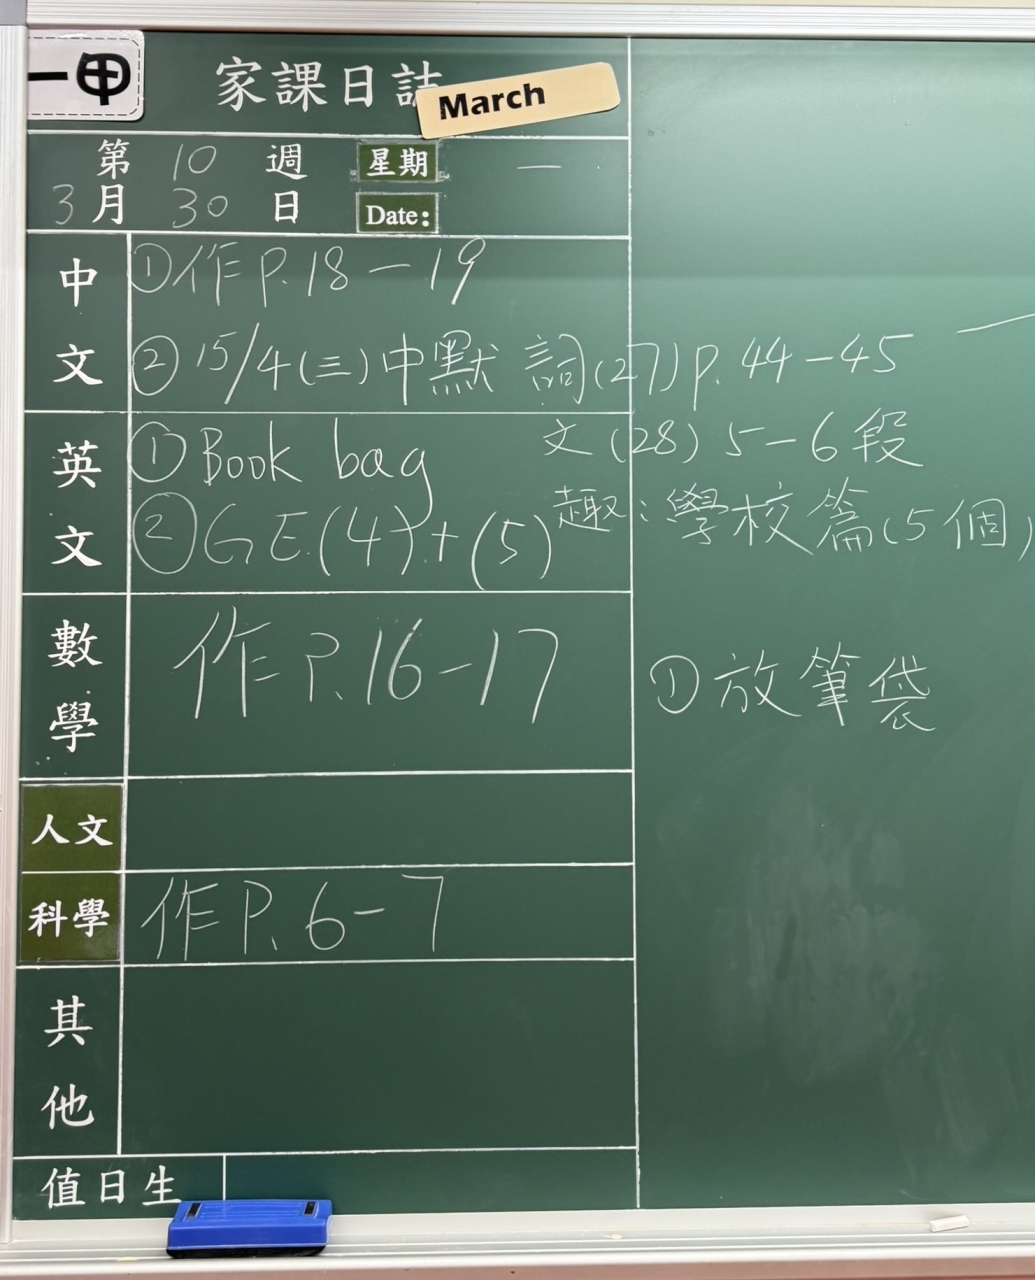 一甲
家課日誌
March
第 10 週 星期 一
3月 30 日 Date:
中文
①作P.18－19
②15/4(三)中默 詞(27)P.44－45
文(28)5－6段
趣：學校篇(5個)
英文
①Book bag
②GE.(4)+(5)
數學
作P.16-17
①放筆袋
人文
科學
作P.6-7
其他
值日生